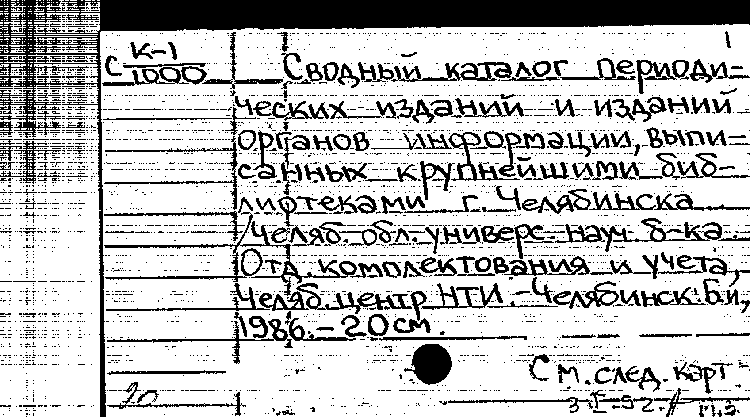 1
С К-1
1000
Сводный каталог периоди=
ческих изданий и изданий
органов информации, выпи=
санных крупнейшими биб-
лиотеками г. Челябинска
/Челяб. обл. универс. науч. б-ка.
Отд. комплектования и учета,
Челяб. центр НТИ.-Челябинск: Б.и,
1986.-20 см.
См. след. карт
20